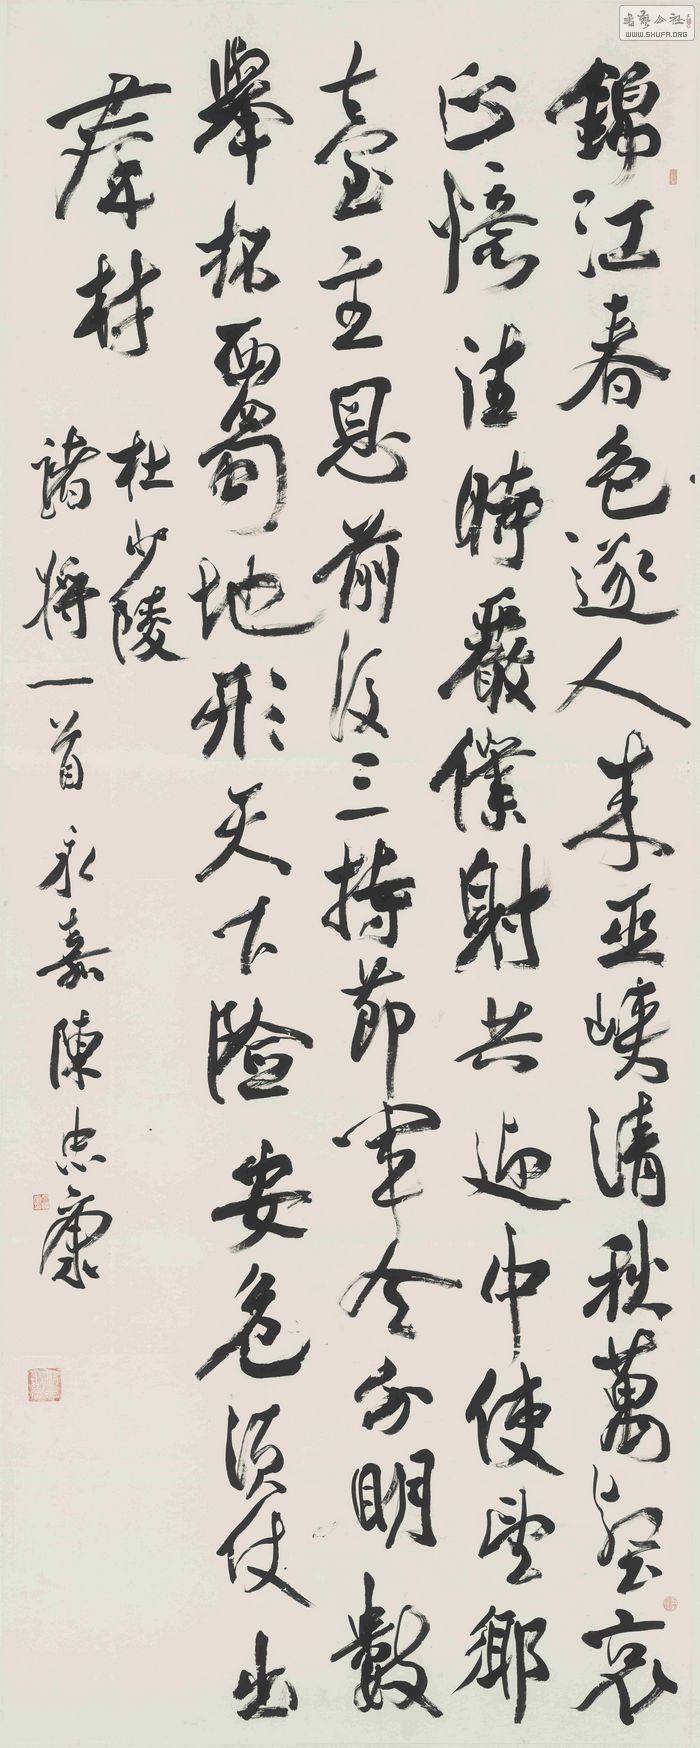 錦江春色逐人来巫峽清秋萬壑哀
正憶往時嚴僕射共迎中使望鄉
臺主恩前後三持節軍令分明數
舉杯西蜀地形天下險安危須仗出
羣材
杜少陵
諸將一首永嘉陳忠康
書藝公社
WWW.SHUFA.ORG